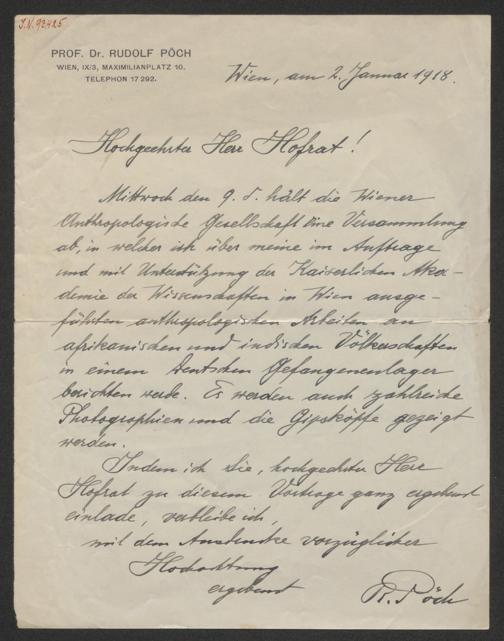 J.N. 93425
PROF. Dr. RUDOLF PÖCH
WIEN, IX/3, MAXIMILIANPLATZ 10.
TELEPHON 17292.
Wien, am 2. Januar 1918.
Hochgeehrter Herr Hofrat!
Mittwoch den 9. d. hält die Wiener
Anthropologische Gesellschaft eine Versammlung
ab, in welcher ich über meine im Auftrage
und mit Unterstützung der Kaiserlichen Aka-
demie der Wissenschaften in Wien ausge-
führten anthropologischen Arbeiten an
afrikanischen und indischen Völkerschaften
in einem deutschen Gefangenenlager
berichten werde. Es werden auch zahlreiche
Photographien und die Gipsköpfe gezeigt
werden.
Indem ich Sie, hochgeehrter Herr
Hofrat zu diesem Vortrage ganz ergebenst
einlade, verbleibe ich,
mit dem Ausdrucke vorzüglicher
Hochachtung
ergebenst
R. Pöch